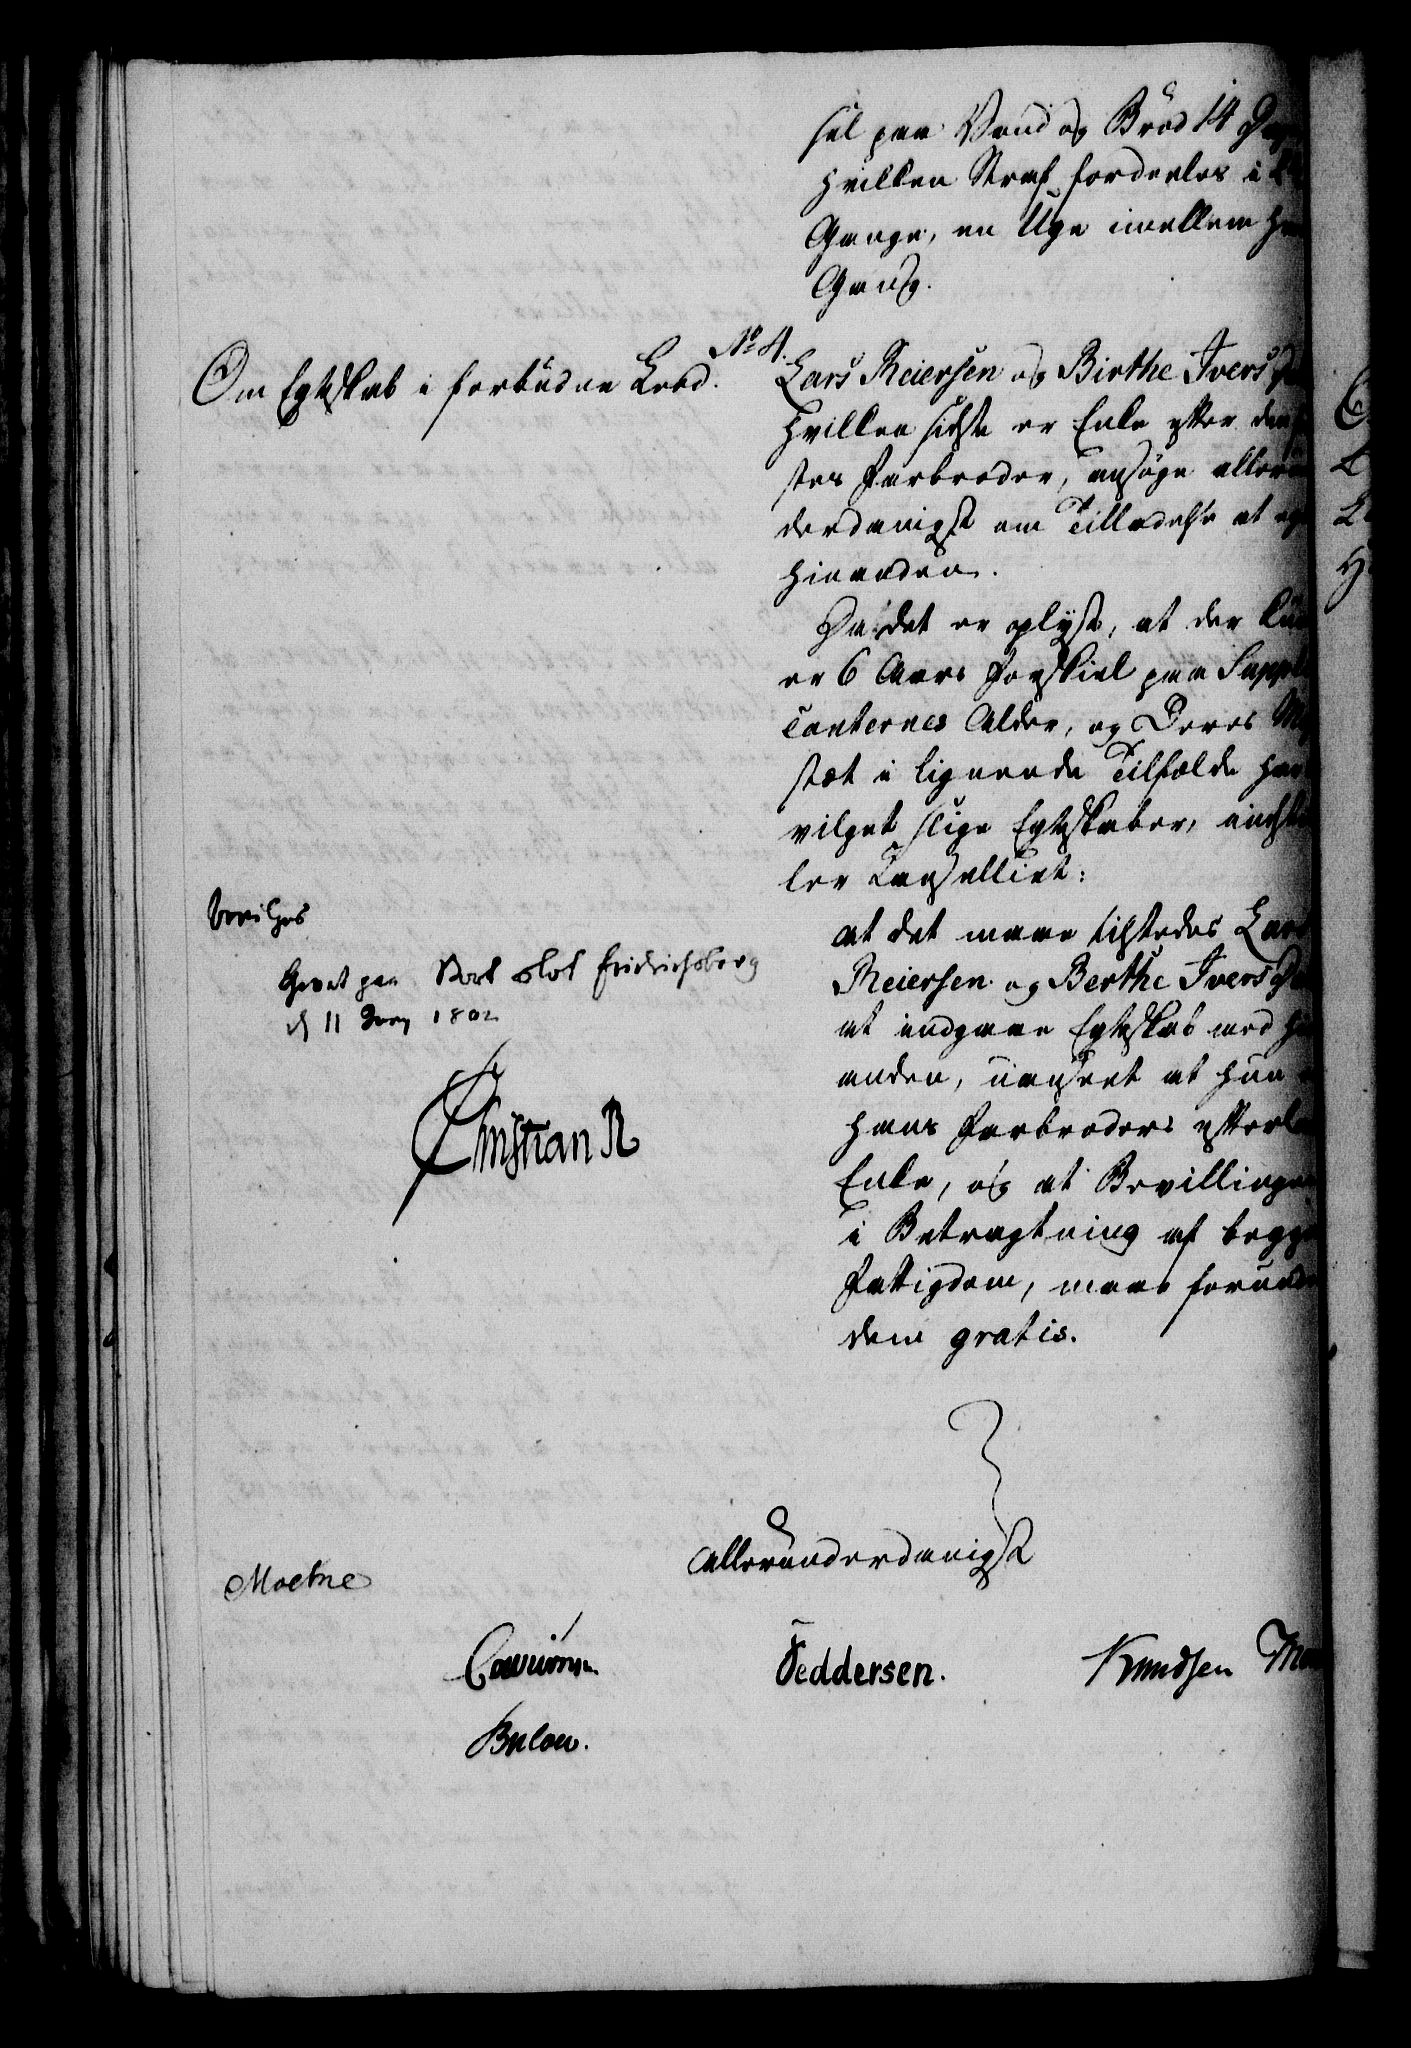 sel paa Vand og Brød 14 Dag
hvilken Straf fordeeles i
Gange, en Uge imellem hv
Gang.
No 4.
Om Egteskab i forbudne Leed.
Lars Reiersen og Birthe Ivers D
hvilken sidste er Enke efter den
stes Farbroder, ansøge alleru
derdanigst om Tilladelse at eg
hinanden.
Da det er oplyst, at der kun
er 6 Aars Forskiel paa Suppli
canternes Alder, og Deres Maj
stæt i lignende Tilfælde har
vilget slige Egteskaber, indstil
ler Cancelliet:
at det maae tilstedes Lars
Reiersen og Berthe Ivers D
at indgaae Egteskab med hin
anden, uanseet at hun
hans Farbroders efterla
Enke, og at Bevillingen
i Betragtning af begges
Fattigdom, maae forunde
dem gratis.
bevilges
Givet paa Vort Slot Fridrichsberg
d 11 Juny 1802
Christian R
allerunderdanigst
Moebne
Feddersen.
Knudsen
Bulow.